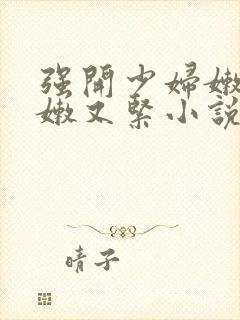 强開少婦嫩
嫩又緊小說
晴子